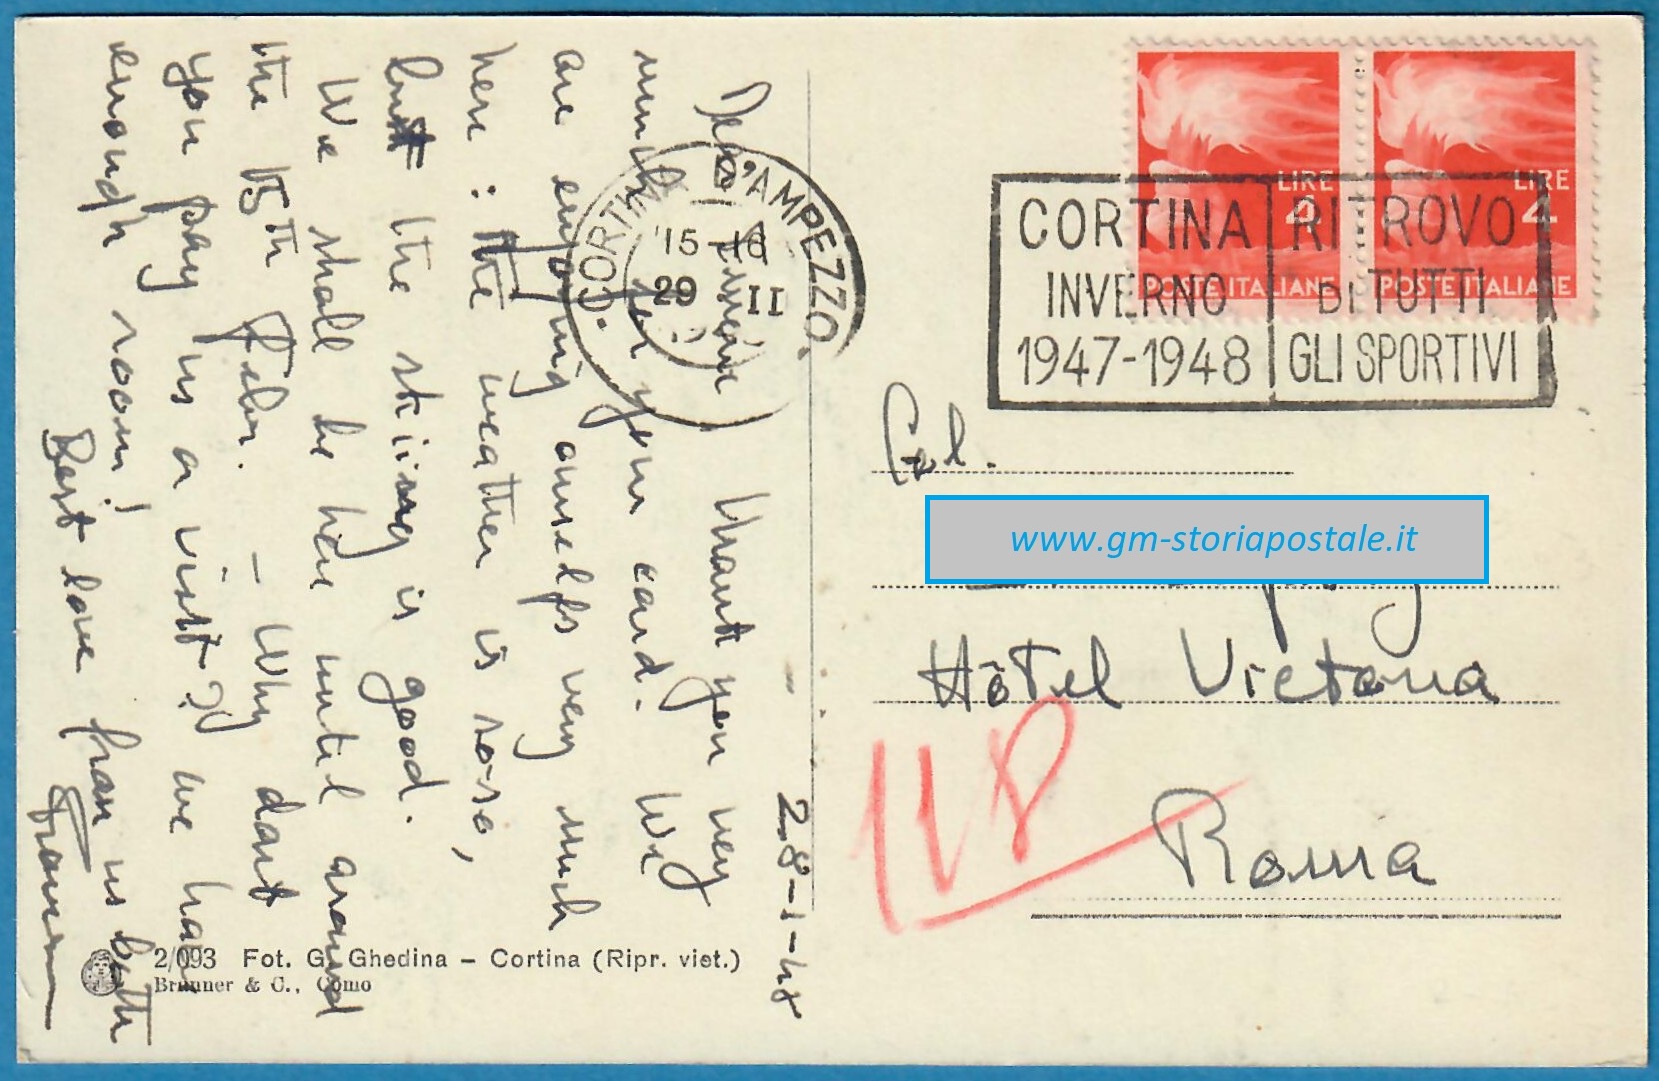 28-1-48
Dear
Thank you very
much for your card. We
are enjoying ourselfs very much
here: the weather is so-so,
but the skiing is good.
We shall be here until around
the 15th Febr. – Why dont
you pay us a visit? we have
enough room!
Best love from us both
CORTINA D'AMPEZZO
15-16
29 II
LIRE
4
POSTE ITALIANE
LIRE
4
POSTE ITALIANE
CORTINA
INVERNO
1947-1948
RITROVO
DI TUTTI
GLI SPORTIVI
Col.
www.gm-storiapostale.it
Hôtel Victoria
Roma
2/093 Fot. G. Ghedina – Cortina (Ripr. viet.)
Brunner & C., Como